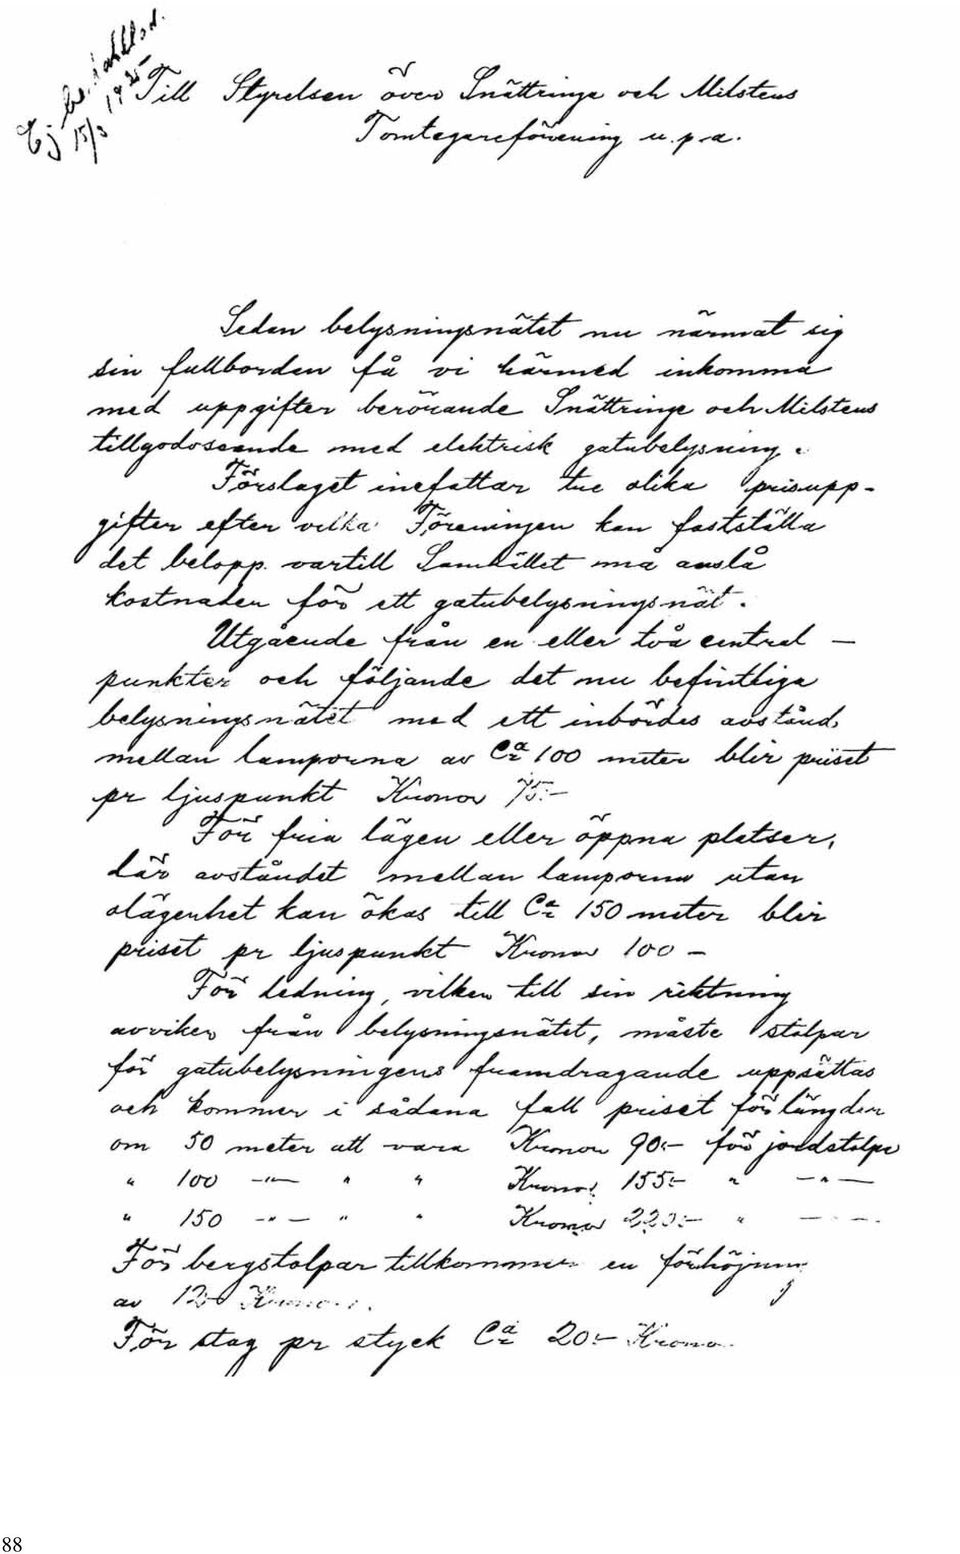 Ej be.
15/3 1925
Till Styrelsen över Snättringe och Milstens
Tomtegareförening u.p.a.
Sedan belysningsnätet nu närmat sig
sin fullborden få vi härmed inkomma
med uppgifter berörande Snättringe och Milstens
tillgodoseende med elektrisk gatubelysning.
Förslaget innefattar tre olika prisupp-
gifter efter vilka Föreningen kan fastställa
det belopp vartill Samhället må anslå
kostnaden för ett gatubelysningsnät.
Utgående från en eller två central-
punkter och följande det nu befintliga
belysningsnätet med ett inbördes avstånd
mellan lamporna av Ca 100 meter blir priset
pr ljuspunkt Kronor 75:-
För fria lägen eller öppna platser,
där avståndet mellan lamporna utan
olägenhet kan ökas till Ca 150 meter blir
priset pr ljuspunkt Kronor 100 -
För ledning, vilken till sin riktning
avviker från belysningsnätet, måste stolpar
för gatubelysningens framdragande uppsättas
och kommer i sådana fall priset för längden
om 50 meter att vara Kronor 90:- för jordstolpe
" 100 -"- " " Kronor 155:- " -"-
" 150 -"- " " Kronor 220:- " -"-
För bergstolpar tillkommer en förhöjning
av 12:- Kronor.
För stag pr styck Ca 20:- Kronor
88